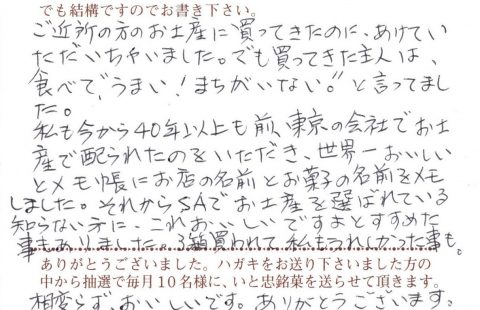 でも結構ですのでお書き下さい。
ご近所の方のお土産に買ってきたのに、あけてい
ただいちゃいました。でも買ってきた主人は、
食べて〝うまい！まちがいない。〟と言ってまし
た。
私も今から40年以上も前、東京の会社でお土
産で配られたのをいただき、世界一おいしい
とメモ帳にお店の名前とお菓子の名前をメモ
しました。それからSAでお土産を選ばれている
知らない方に、これおいしいですよとすすめた
事もありました。3箱買われて、私もうれしかった事も。
ありがとうございました。ハガキをお送り下さいました方の
中から抽選で毎月10名様に、いと忠銘菓を送らせて頂きます。
相変らず、おいしいです。ありがとうございます。